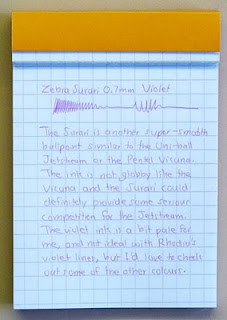 Zebra Surari 0.7mm Violet
The Surari is another super-smooth
ballpoint similar to the Uni-ball
Jetstream or the Pentel Vicuna.
The ink is not globby like the
Vicuna and the Surari could
definitely provide some serious
competition for the Jetstream.
The violet ink is a bit pale for
me, and not ideal with Rhodia's
violet lines, but I'd love to check
out some of the other colours.